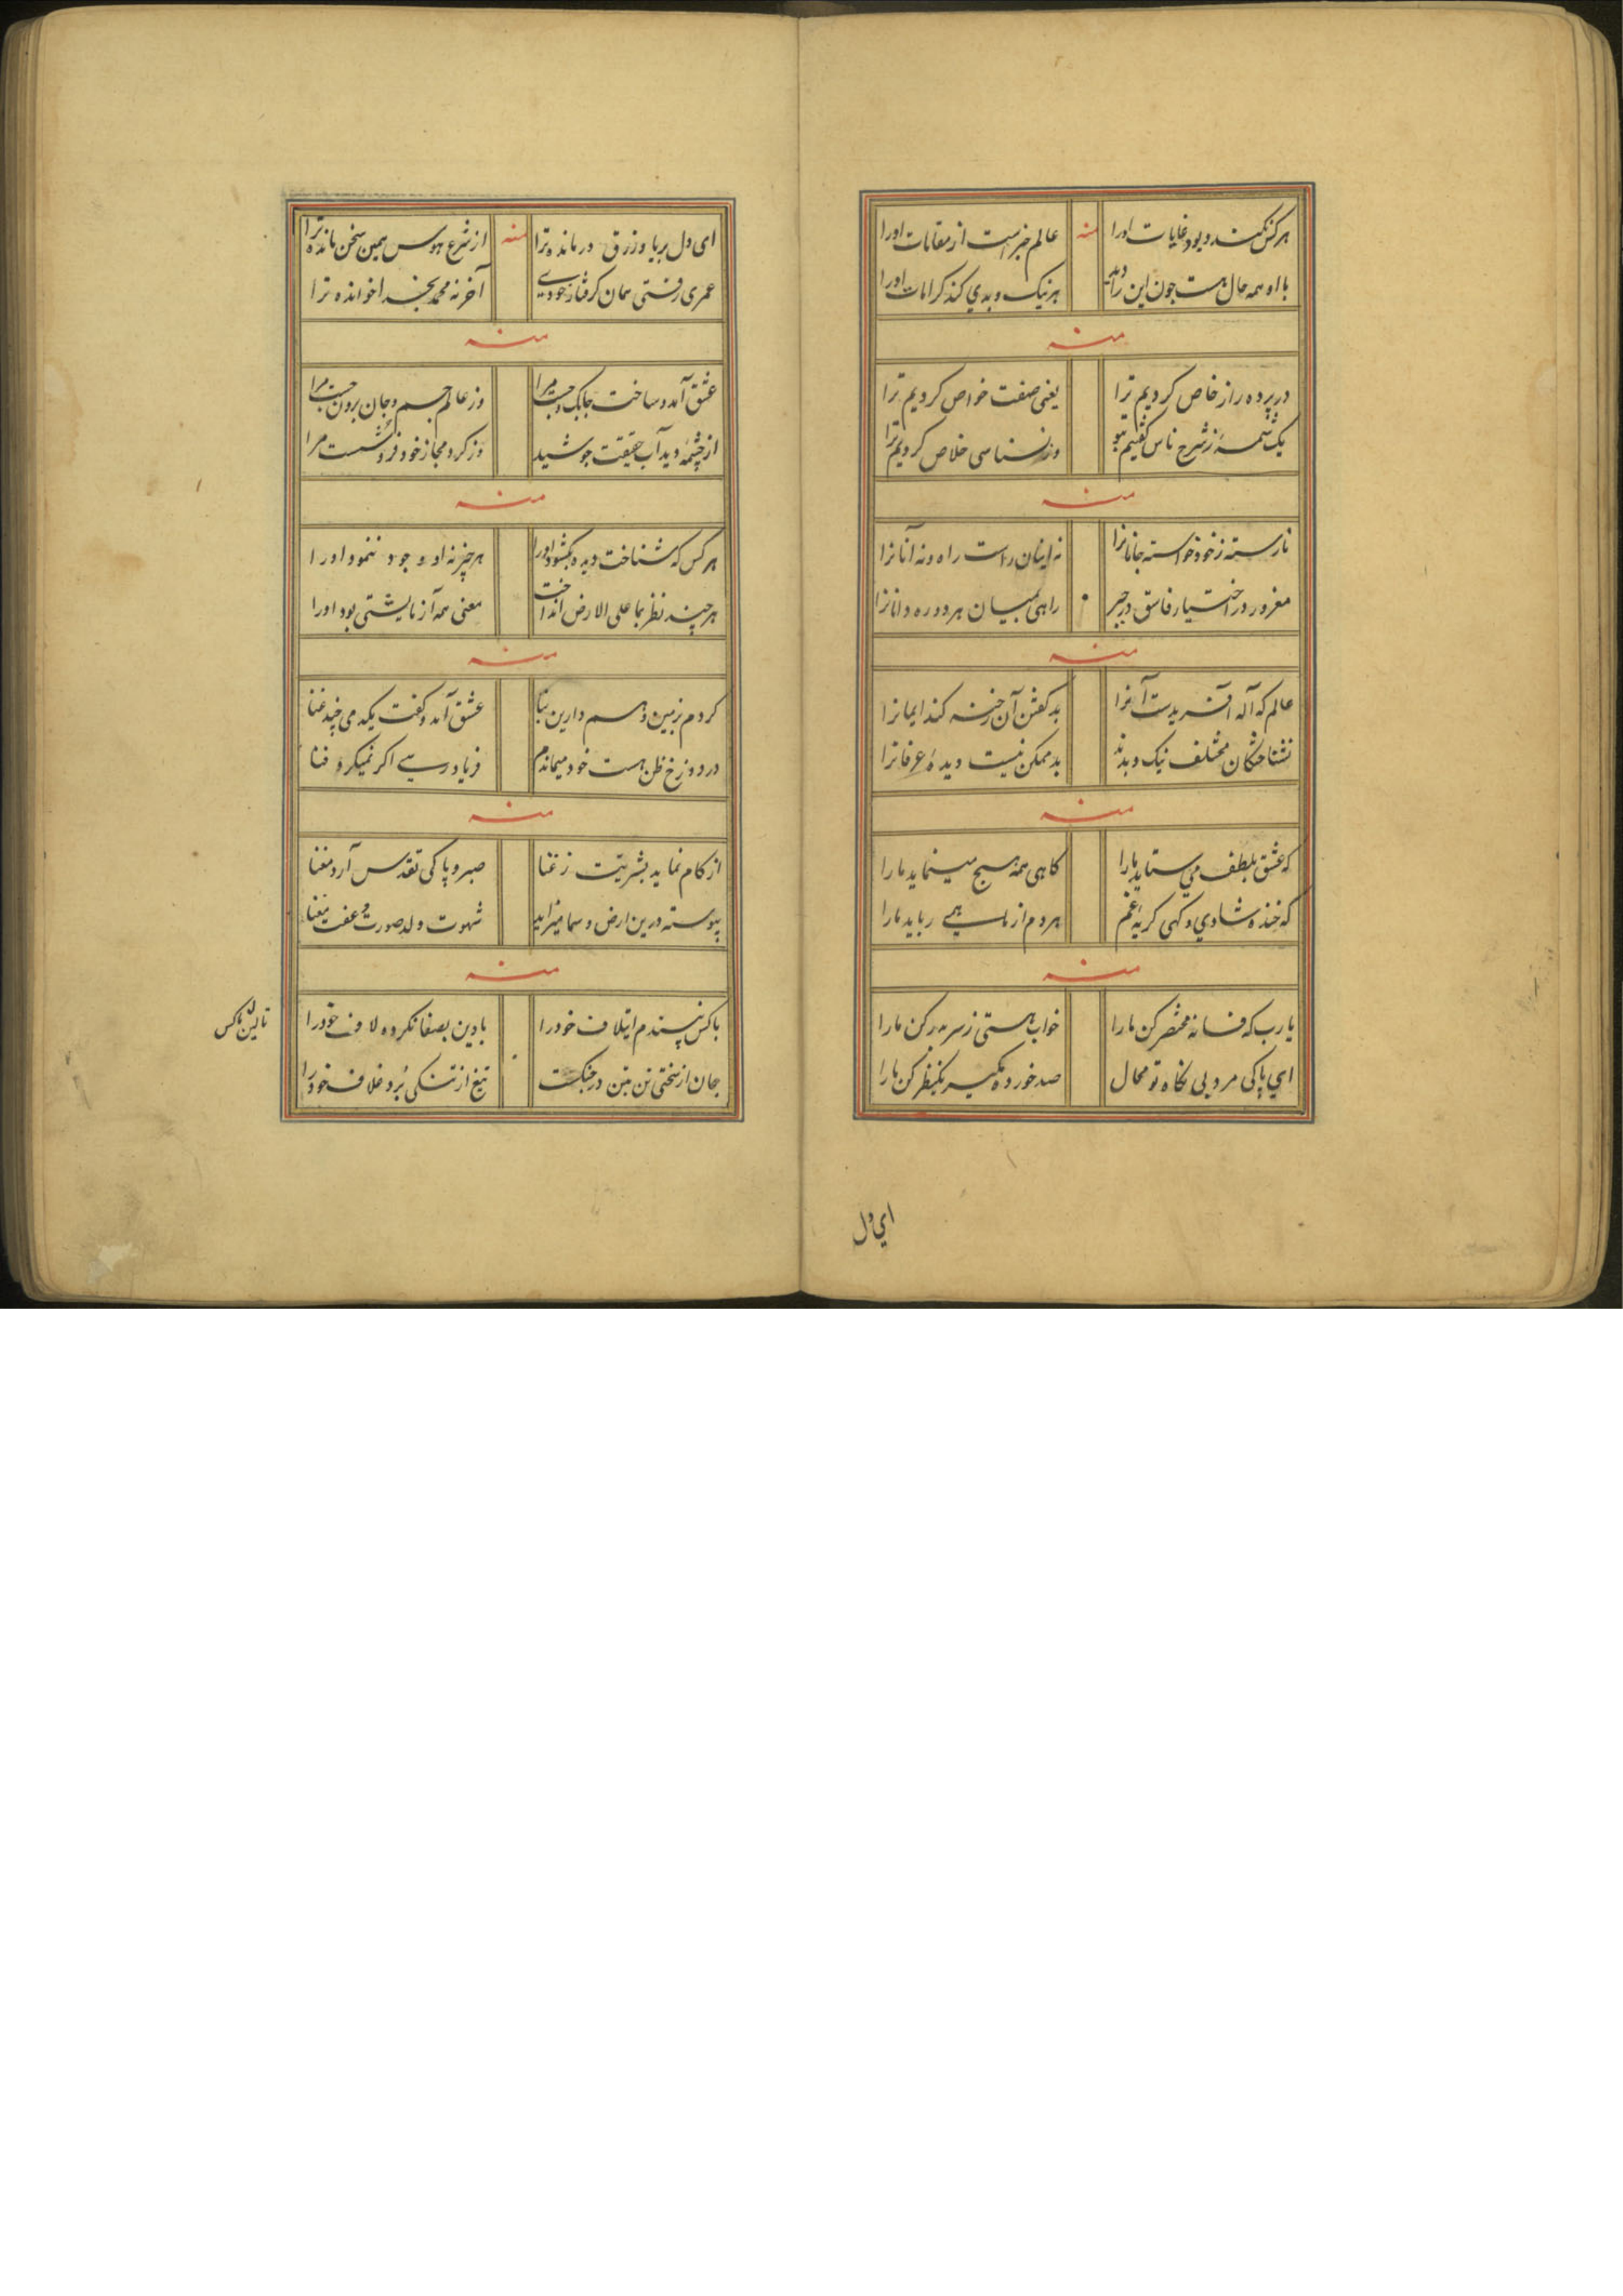 هرکس نکند و بود غایات اورا
منه
عالم خبر است از مقامات اورا
با او همه حال هست چون این را دید
هر نیک و بدی کند کرامات اورا
منه
در پرده راز خاص کردیم ترا
یعنی صفت خواص کردیم ترا
یک شمه ز شرح ناس گفتیم بتو
وز نسناسی خلاص کردیم ترا
منه
نارسته ز خود خواسته جانانرا
نه اینان راست راه و نه آنانرا
مغرور در اختیار فاسق در جبر
راهی بمیان هر دو ره دانانرا
منه
عالم که آله آفریدست آنرا
بد گفتن آن رخنه کند ایمانرا
نشناختگان مختلف نیک و بدند
بد ممکن نیست دیدهٔ عرفانرا
منه
که عشق بلطف می ستاید مارا
کاهی همه هیچ مینماید مارا
که خنده شادی و کهی کریه غم
هر دم از ما همی رباید مارا
منه
یا رب که فسانه مختصر کن مارا
خواب هستی ز سر بدر کن مارا
ای پاکی مرد بی نکاه تو محال
صد خورده مکیر یکنظر کن مارا
ای دل
ای دل بریا و زرق درمانده ترا
منه
از شرع هوس همین سخن مانده ترا
عمری رفتی همان کرفتار خودی
آخر نه محمد بخدا خوانده ترا
منه
عشق آمد و ساخت چابک و چست مرا
وز عالم جسم و جان برون جست مرا
از چشمه دید آب حقیقت جوشید
وز کرد مجاز خود فرو شست مرا
منه
هر کس که شناخت دیده بکشود اورا
هر چیز نه او وجود ننمود اورا
هر چند نظر بما علی الارض انداخت
معنی همه آزمایشتی بود اورا
منه
کردم ز بین و هم دارین بنا
عشق آمد و کفت یکدمی چند غنا
در دوزخ ظن هست خود میماندم
فریاد رسی اکر نمیکرد فنا
منه
از کام نماید بشریت ز غنا
صبر و پاکی تقدس آرد معنا
پیوسته درین ارض و سما میزاید
شهوت ولد صورت و عفت معنا
منه
با کس نپسندم ایتلاف خودرا
با دین بصفا نکرده لاف خودرا
جان از سختی تن بتن در جنکست
تیغ از تنکی برد غلاف خودرا